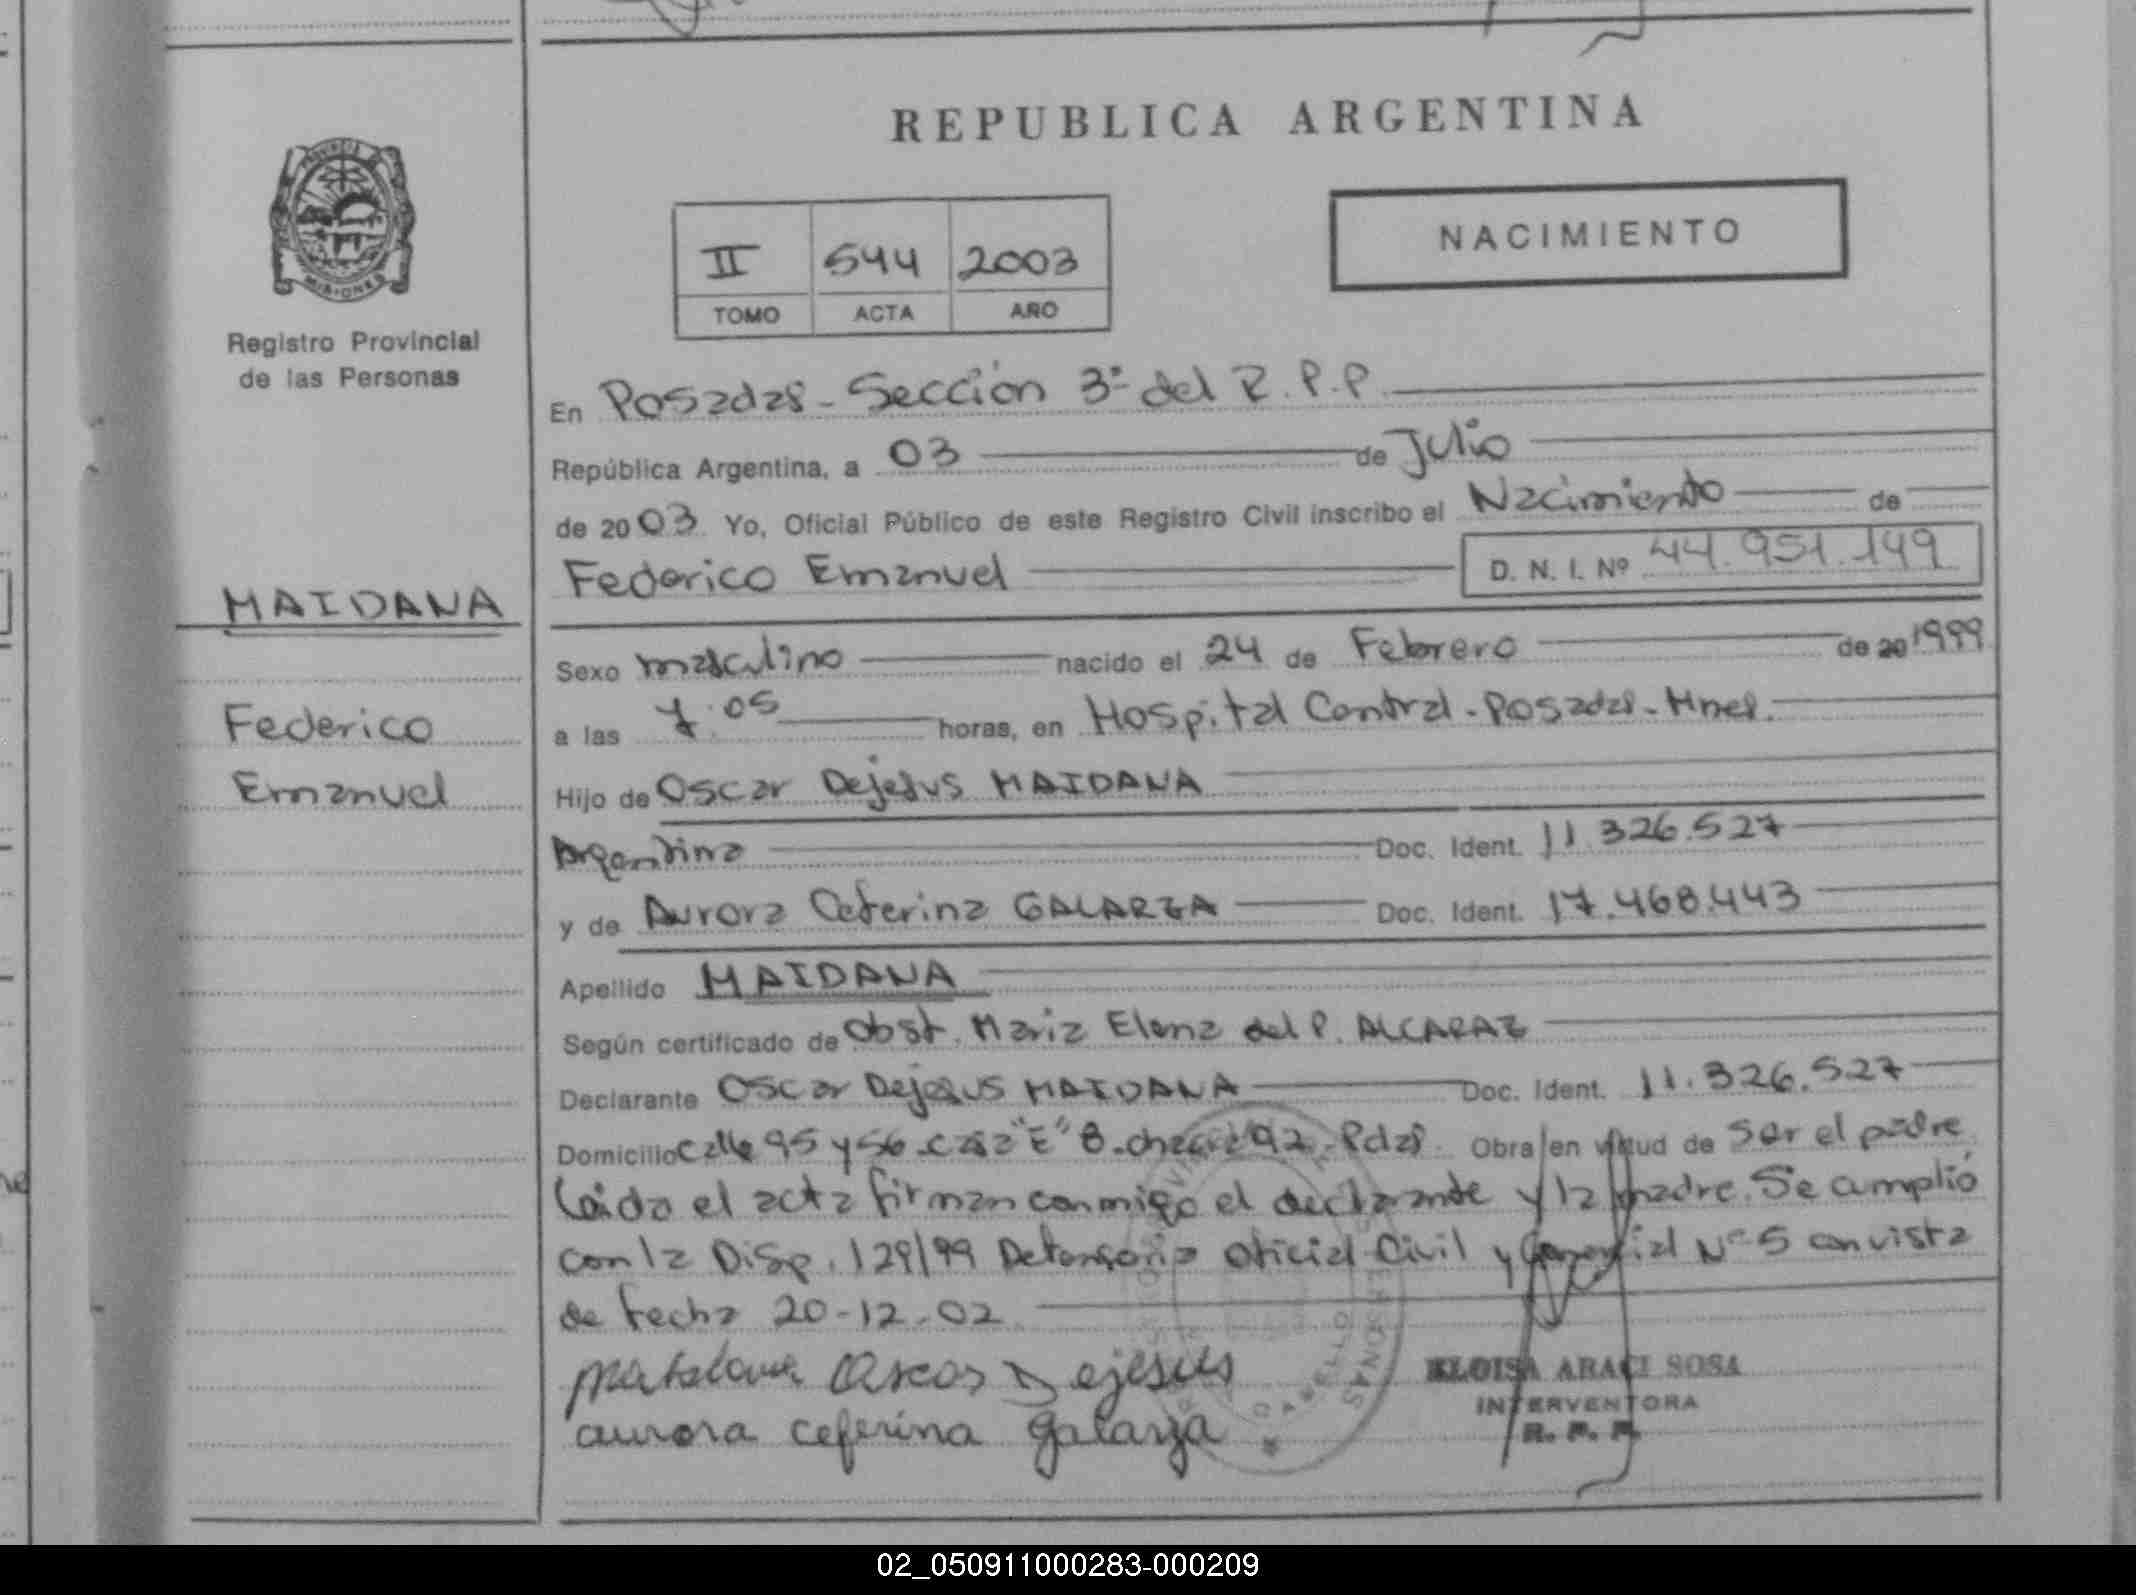 REPUBLICA ARGENTINA
PROVINCIA DE
MISIONES
Registro Provincial
de las Personas
II 544 2003
TOMO ACTA AÑO
NACIMIENTO
En Posadas - Sección 3ª del R.P.P.
República Argentina, a 03 de Julio
de 2003. Yo, Oficial Público de este Registro Civil inscribo el Nacimiento de
Federico Emanuel D. N. I. Nº 44.951.149
MAIDANA
Federico
Emanuel
Sexo masculino nacido el 24 de Febrero de 20 1999
a las 7:05 horas, en Hospital Central - Posadas - Mnes.
Hijo de Oscar Dejesus MAIDANA
Argentina Doc. Ident. 11.326.527
y de Aurora Ceferina GALARZA Doc. Ident. 17.468.443
Apellido MAIDANA
Según certificado de Obst. Maria Elena del P. ALCARAZ
Declarante Oscar Dejesus MAIDANA Doc. Ident. 11.326.527
Domicilio calle 95 y 56 casa "E" 8 - chacra 92 - Pdas. Obra en virtud de ser el padre
Leida el acta firman conmigo el declarante y la madre. Se amplió
con la Disp. 129/99 Defensoria Oficial Civil y Nº 5 con vista
de fecha 20-12-02
Dejesus
aurora ceferina galarza
ELOISA ARACI SOSA
INTERVENTORA
R. P. P.
02_050911000283-000209